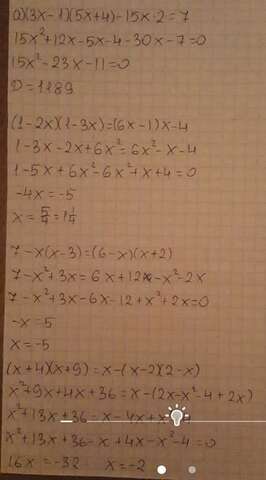 а)(3x-1)(5x+4)-15x·2=7
15x²+12x-5x-4-30x-7=0
15x²-23x-11=0
D=1189
(1-2x)(1-3x)=(6x-1)x-4
1-3x-2x+6x²=6x²-x-4
1-5x+6x²-6x²+x+4=0
-4x=-5
x=5/4=1 1/4
7-x(x-3)=(6-x)(x+2)
7-x²+3x=6x+12-x²-2x
7-x²+3x-6x-12+x²+2x=0
-x=5
x=-5
(x+4)(x+9)=x-(x-2)(2-x)
x²+9x+4x+36=x-(2x-x²-4+2x)
x²+13x+36=x-4x+x²+4
x²+13x+36-x+4x-x²-4=0
16x=-32 x=-2